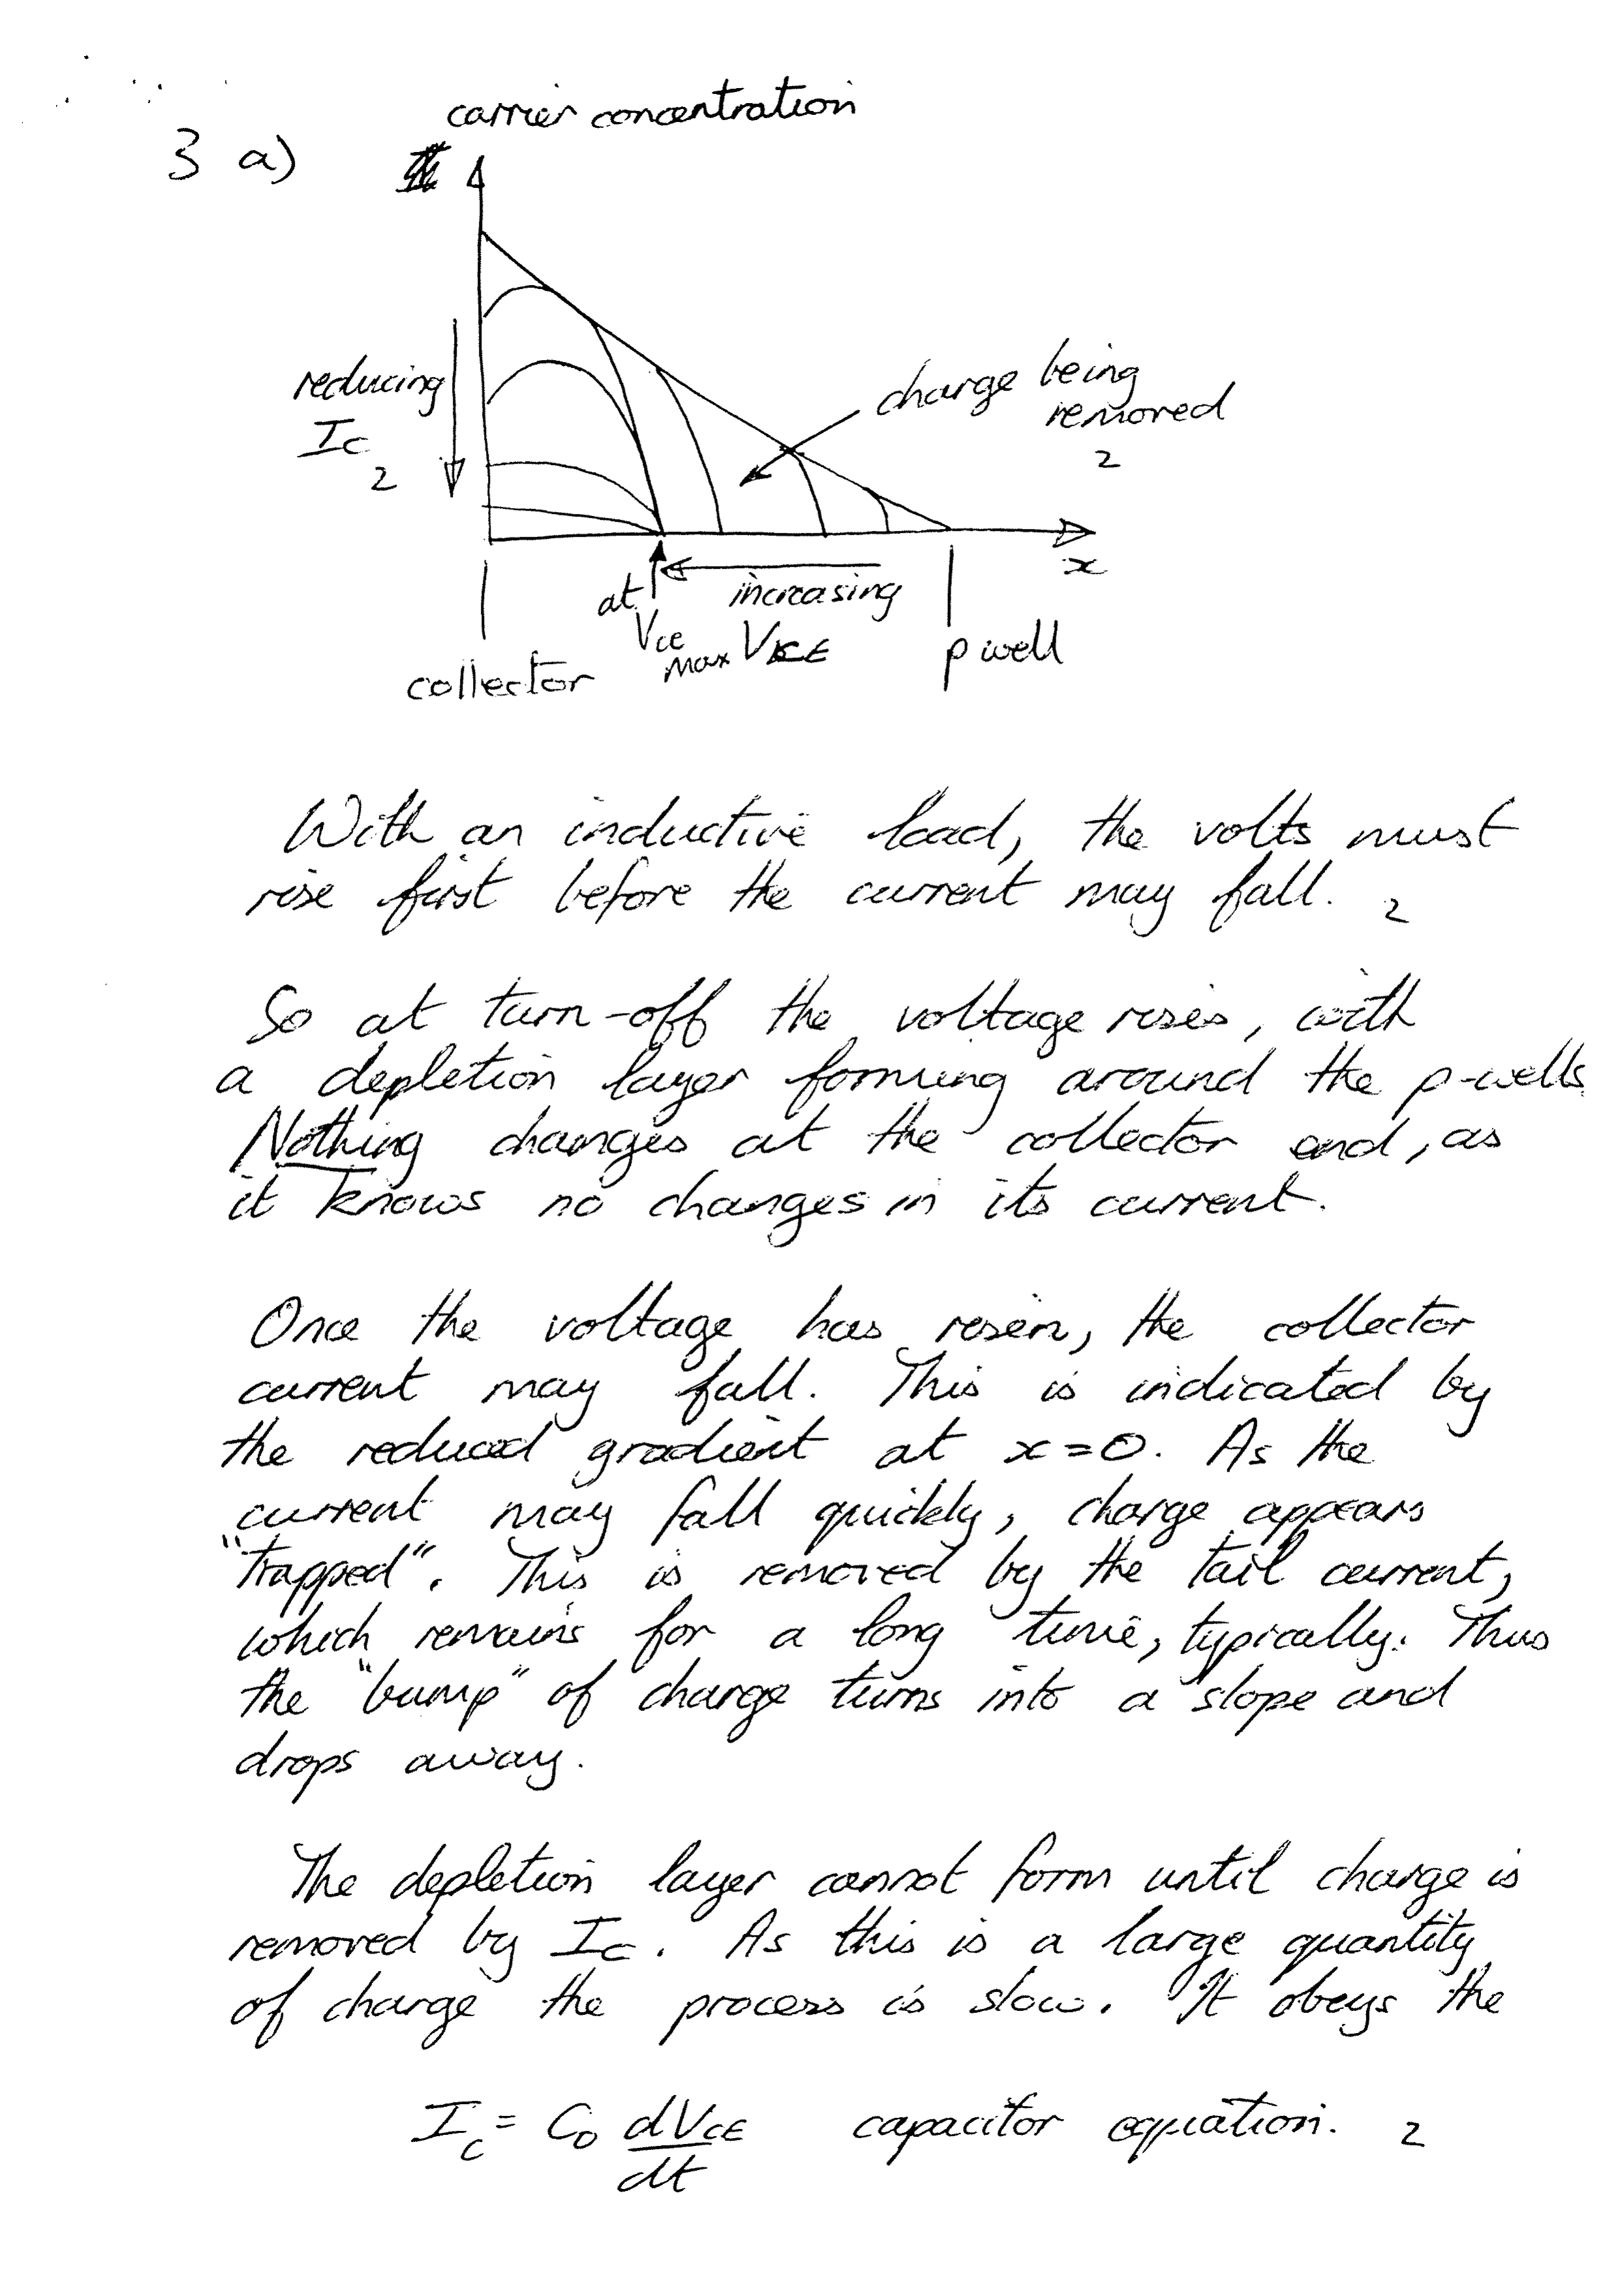 carrier concentration
3 a)
reducing
Ic
2
charge being
removed
2
x
at
Vce
max
increasing
VCE
collector
p well
With an inductive load, the volts must
rise first before the current may fall. 2
So at turn-off the voltage rises, with
a depletion layer forming around the p-wells
Nothing changes at the collector end, as
it knows no changes in its current.
Once the voltage has risen, the collector
current may fall. This is indicated by
the reduced gradient at x=0. As the
current may fall quickly, charge appears
"trapped". This is removed by the tail current,
which remains for a long time, typically. Thus
the "bump" of charge turns into a slope and
drops away.
The depletion layer cannot form until charge is
removed by Ic. As this is a large quantity
of charge the process is slow. It obeys the
Ic = C0 dVCE/dt capacitor equation. 2